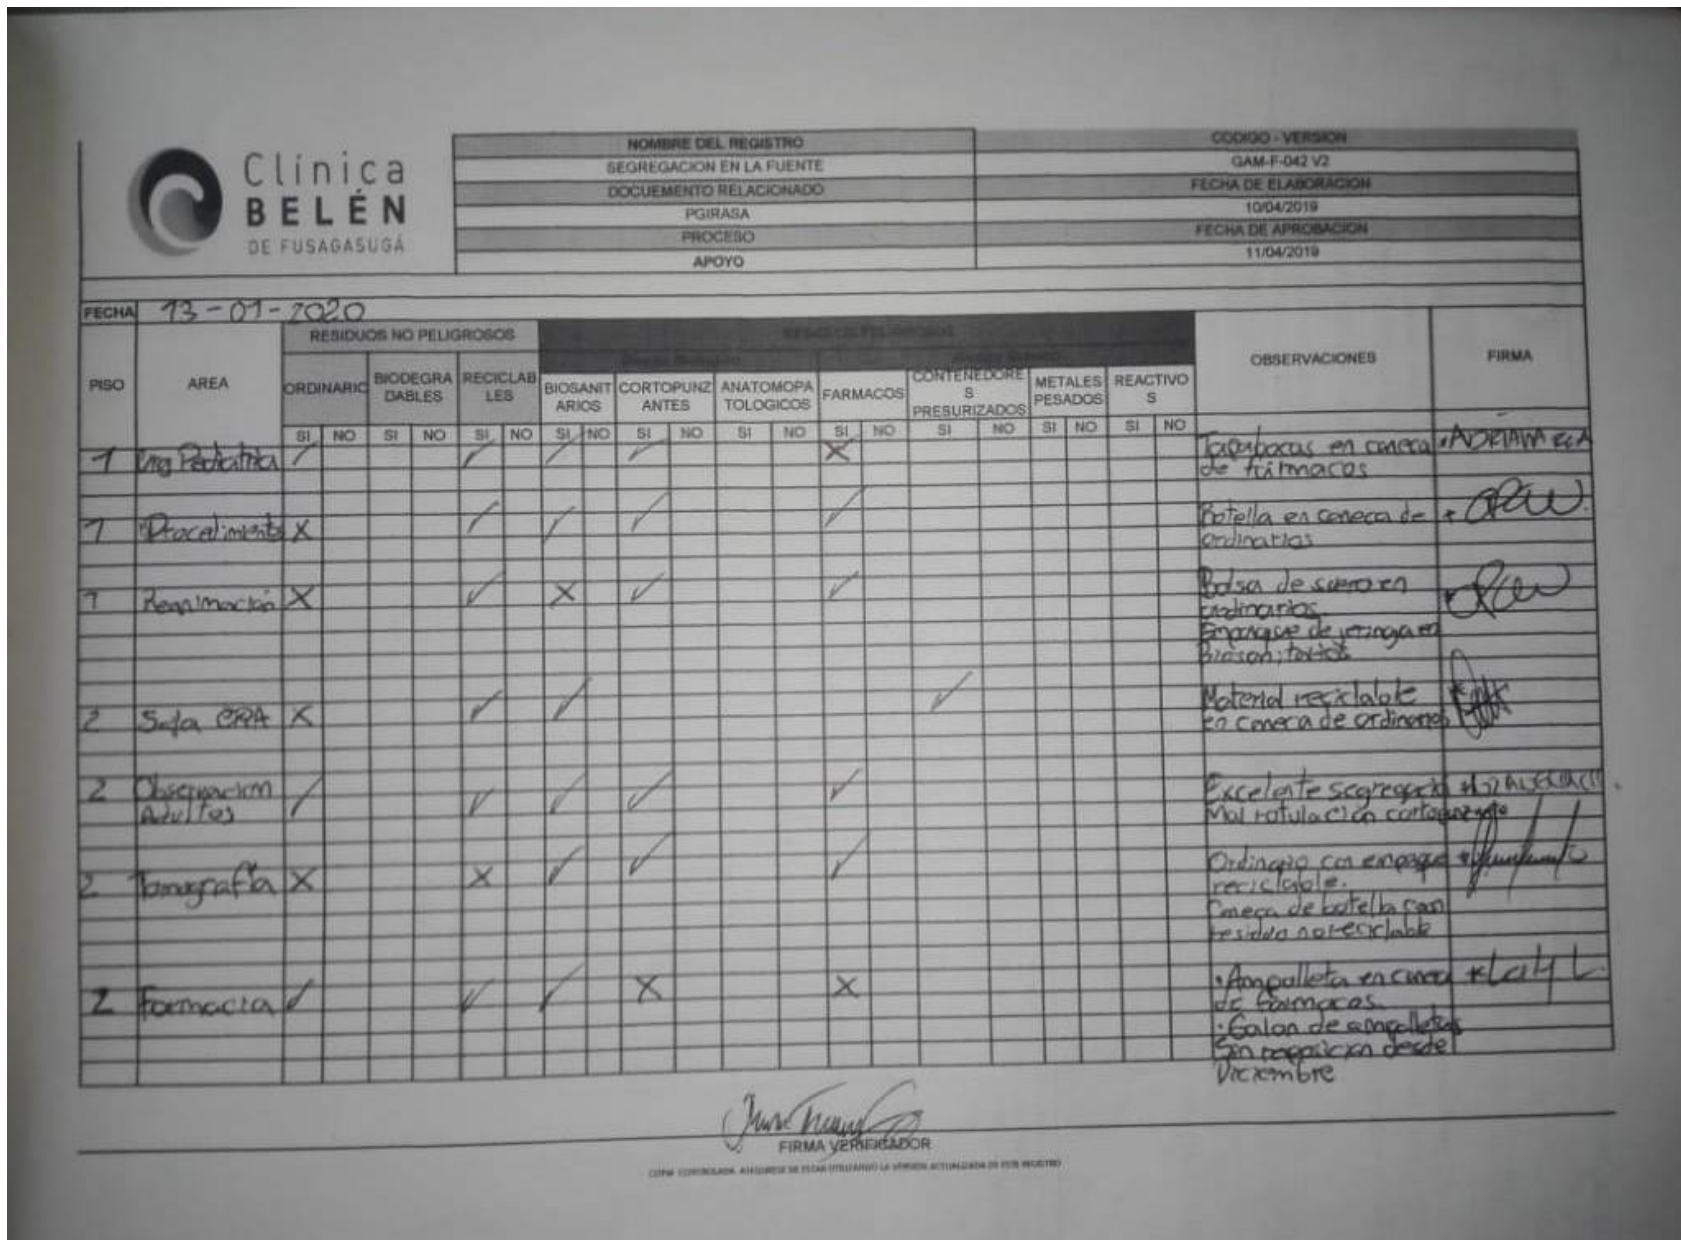 Clínica
BELÉN
DE FUSAGASUGÁ
NOMBRE DEL REGISTRO
SEGREGACION EN LA FUENTE
DOCUEMENTO RELACIONADO
PGIRASA
PROCESO
APOYO
CODIGO - VERSION
GAM-F-042 V2
FECHA DE ELABORACION
10/04/2019
FECHA DE APROBACION
11/04/2019
FECHA 13-01-2020
PISO
AREA
RESIDUOS NO PELIGROSOS
ORDINARIO
BIODEGRA
DABLES
RECICLAB
LES
BIOSANIT
ARIOS
CORTOPUNZ
ANTES
ANATOMOPA
TOLOGICOS
FARMACOS
CONTENEDORE
S
PRESURIZADOS
METALES
PESADOS
REACTIVO
S
OBSERVACIONES
FIRMA
SI NO SI NO SI NO SI NO SI NO SI NO SI NO SI NO SI NO SI NO
1 Urg Pediatria ✓ ✓ ✓ ✓ X Tapabocas en caneca
de farmacos
1 Procedimiento X ✓ ✓ ✓ ✓ Botella en caneca de
ordinarios
1 Reanimación X ✓ X ✓ ✓ Bolsa de suero en
ordinarios
Empaque de jeringa en
Biosanitarios
2 Sala ERA X ✓ ✓ ✓ Material reciclable
en caneca de ordinarios
2 Observacion
Adultos ✓ ✓ ✓ ✓ ✓ Excelente
Mal rotulación
2 Tomografía X X ✓ ✓ ✓ Ordinario con empaque
reciclable.
Caneca de botella con
residuo no reciclable
2 Farmacia ✓ ✓ ✓ X X ·Ampolleta en caneca
de farmacos.
·Galon de ampolletas
Sin desde
Diciembre
FIRMA VERIFICADOR
COPIA CONTROLADA. ASEGURESE DE ESTAR UTILIZANDO LA VERSION ACTUALIZADA DE ESTE REGISTRO